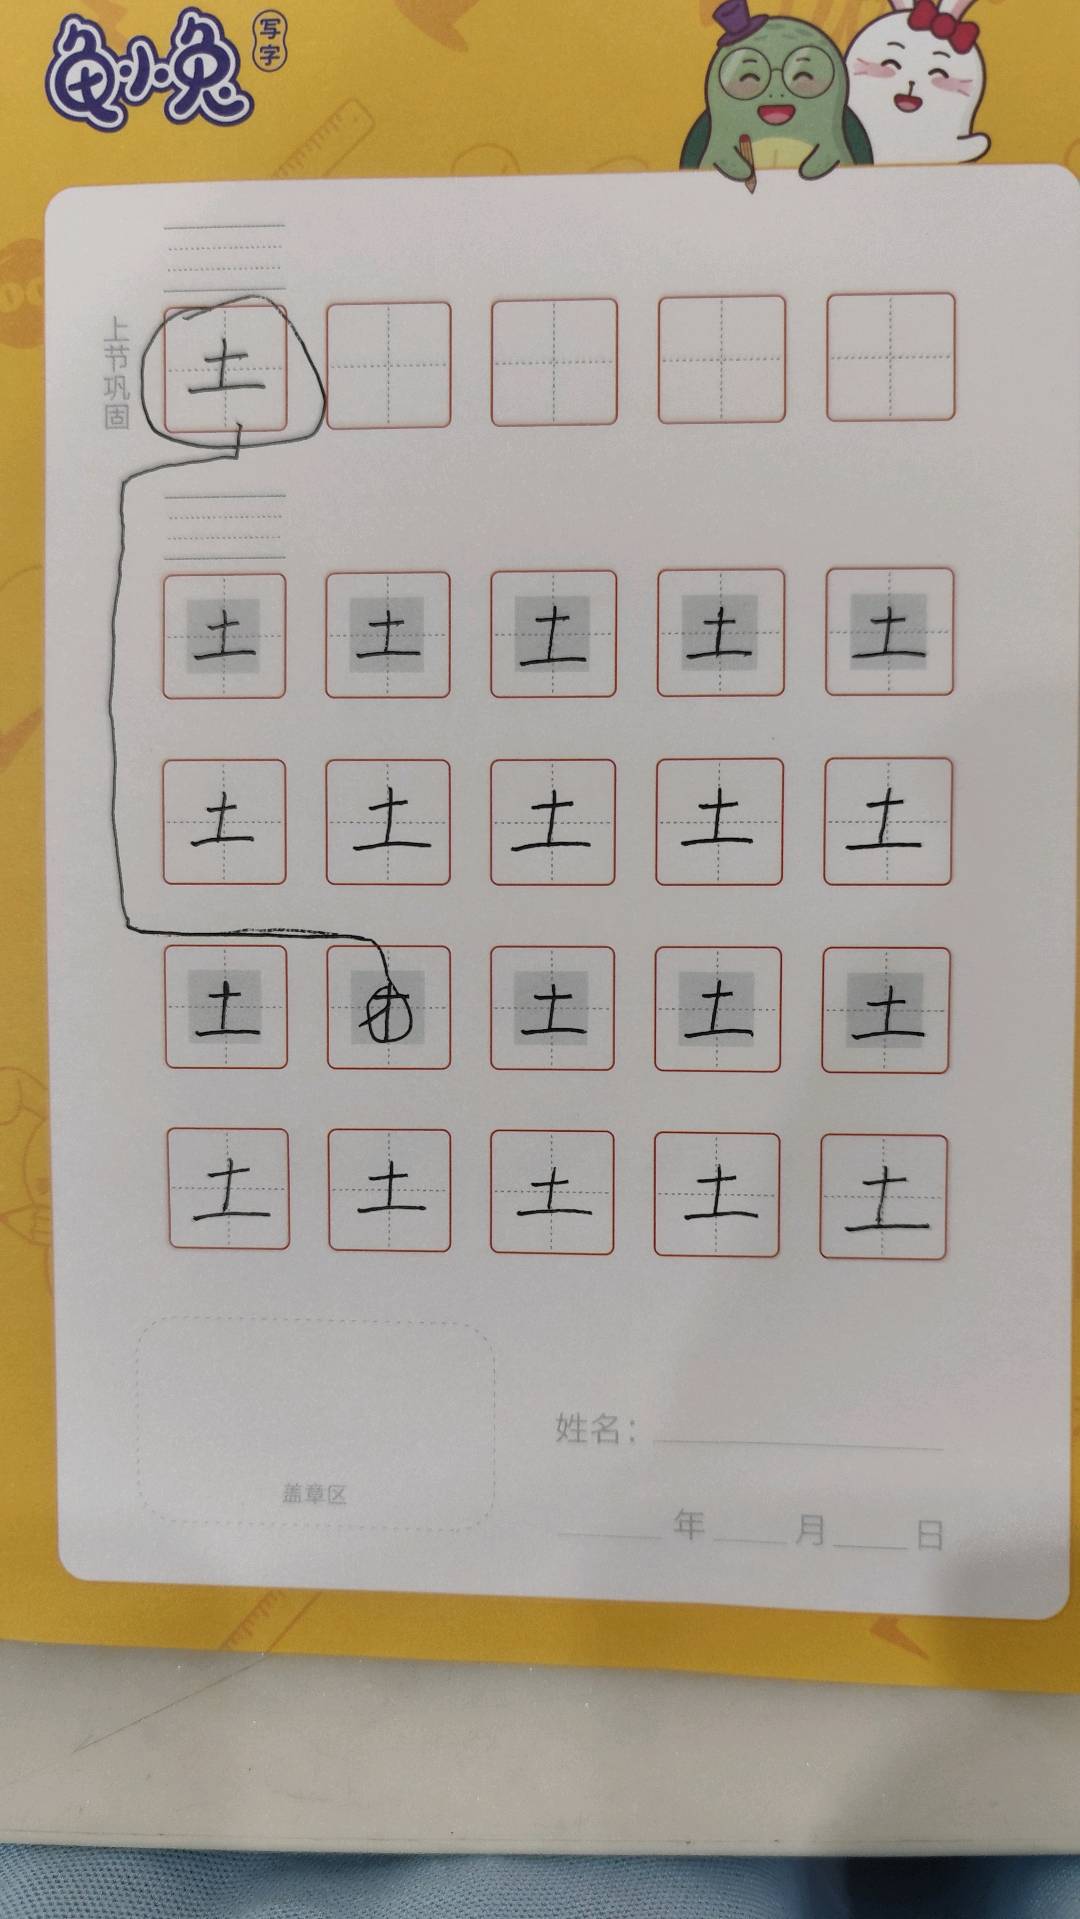 龟小兔 写字
上节巩固
土
土 土 土 土 土
土 土 土 土 土
土 土 土 土
土 土 土 土 土
盖章区
姓名：
年 月 日